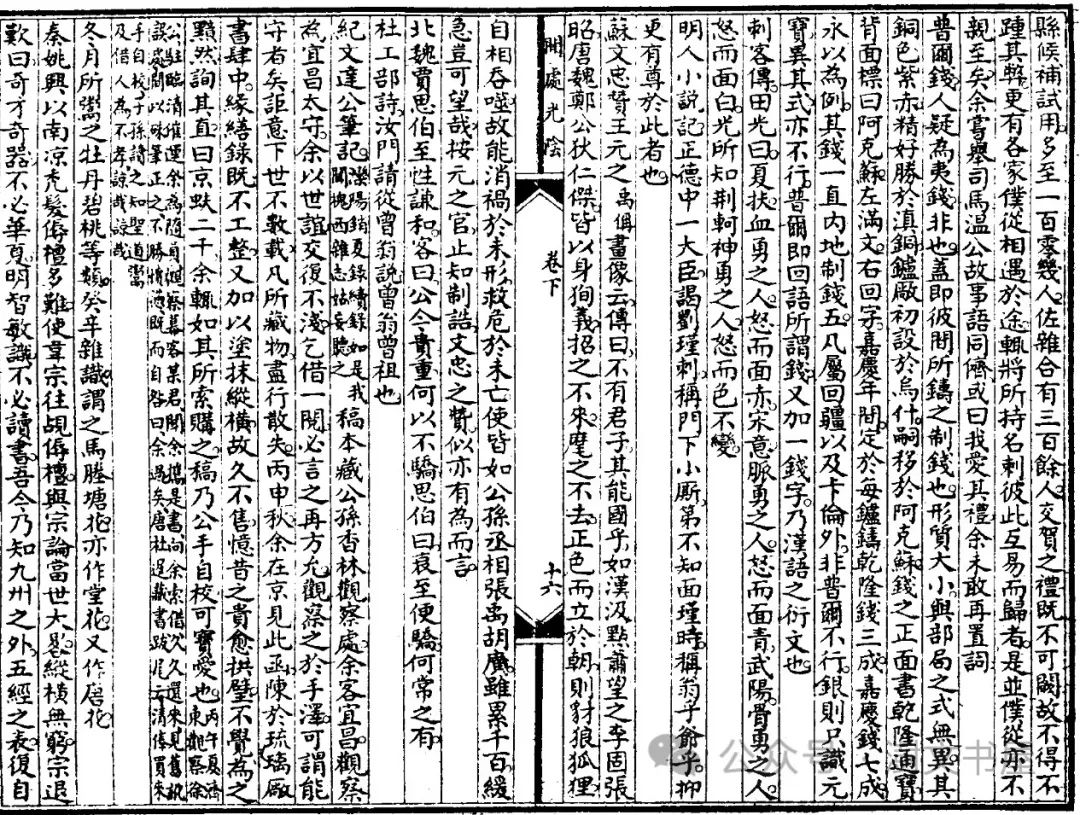 縣候補試用多至一百零幾人佐雜合有三百餘人交賀之禮既不可闕故不得不
踵其弊更有各家僕從相遇於途輒將所持名刺彼此互易而歸者是並僕從亦不
親至矣余嘗舉司馬溫公故事語同儕或曰我愛其禮余未敢再置詞
普爾錢人疑為夷錢非也蓋即彼間所鑄之制錢也形質大小與部局之式無異其
銅色紫赤精好勝於滇銅鑪廠初設於烏什嗣移於阿克蘇錢之正面書乾隆通寶
背面標曰阿克蘇左滿文右回字嘉慶年間定於每鑪鑄乾隆錢三成嘉慶錢七成
永以為例其錢一直內地制錢五凡屬回疆以及卡倫外非普爾不行銀則只識元
寶異其式亦不行普爾即回語所謂錢又加一錢字乃漢語之衍文也
刺客傳田光曰夏扶血勇之人怒而面赤宋意脈勇之人怒而面青武陽骨勇之人
怒而面白光所知荊軻神勇之人怒而色不變
明人小說記正德中一大臣謁劉瑾刺稱門下小廝第不知面瑾時稱翁乎爺乎抑
更有尊於此者也
蘇文忠贊王元之禹偁畫像云傳曰不有君子其能國乎如漢汲黯蕭望之李固張
昭唐魏鄭公狄仁傑皆以身徇義招之不來麾之不去正色而立於朝則豺狼狐狸
閒處光陰
卷下
十六
自相吞噬故能消禍於未形救危於未亡使皆如公孫丞相張禹胡廣雖累千百緩
急豈可望哉按元之官止知制誥文忠之贊似亦有為而言
北魏賈思伯至性謙和客曰公今貴重何以不驕思伯曰衰至便驕何常之有
杜工部詩汝門請從曾翁說曾翁曾祖也
紀文達公筆記灤陽銷夏錄續錄如是我聞槐西雜志姑妄聽之稿本藏公孫香林觀察處余客宜昌觀察
為宜昌太守余以世誼交復不淺乞借一閱必言之再方允觀察之於手澤可謂能
守者矣詎意下世不數載凡所藏物盡行散失丙申秋余在京見此函陳於琉璃廠
書肆中緣繕錄既不工整又加以塗抹縱橫故久不售憶昔之貴愈拱璧不覺為之
黯然詢其直曰京默二千余輒如其所索購之稿乃公手自校可寶愛也丙午夏濟東觀察徐
公駐臨清催運余為隨員迴察幕客某君聞余攜是書向余索借久久還來見舊訊
誤處間以硃筆正之不勝憤懣既而自咎曰余過矣唐杜暹藏書跋尾云清俸買來
手自校子孫讀之知聖道鬻
及借人為不孝諒哉諒哉
冬月所鬻之牡丹碧桃等類癸辛雜識謂之馬塍塘花亦作堂花又作唐花
秦姚興以南涼禿髮傉檀多難使韋宗往覘傉檀與宗論當世大略縱橫無窮宗退
歎曰奇才奇器不必華夏明智敏識不必讀書吾今乃知九州之外五經之表復自